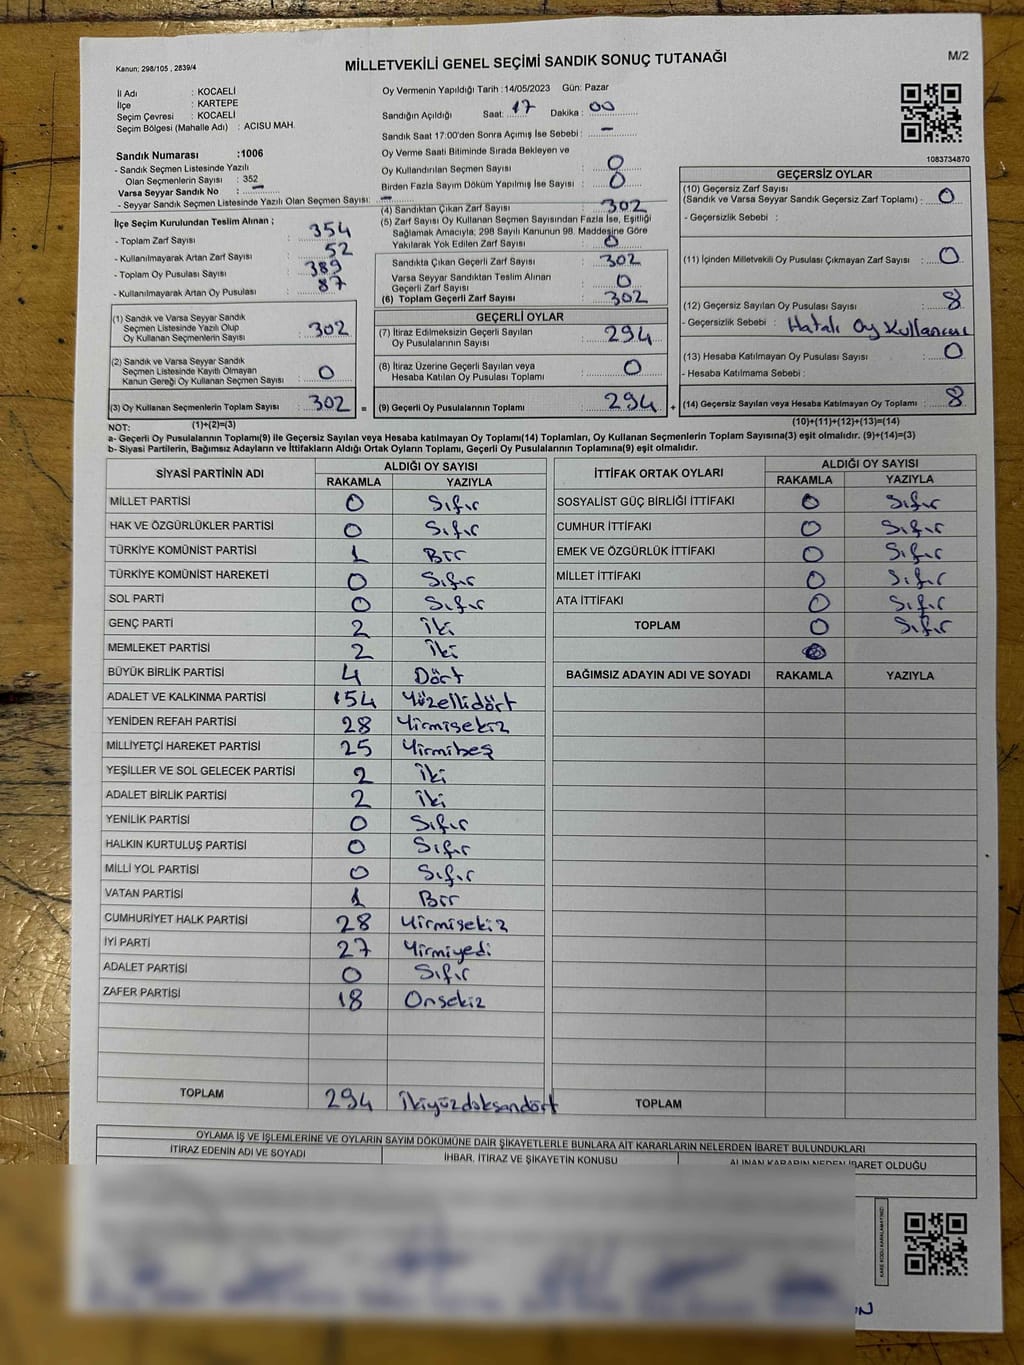 Kanun: 298/105 , 2839/4
MİLLETVEKİLİ GENEL SEÇİMİ SANDIK SONUÇ TUTANAĞI
M/2
İl Adı : KOCAELİ
İlçe : KARTEPE
Seçim Çevresi : KOCAELİ
Seçim Bölgesi (Mahalle Adı) : ACISU MAH.
Sandık Numarası :1006
- Sandık Seçmen Listesinde Yazılı
Olan Seçmenlerin Sayısı : 352
Varsa Seyyar Sandık No : –
- Seyyar Sandık Seçmen Listesinde Yazılı Olan Seçmen Sayısı : –
İlçe Seçim Kurulundan Teslim Alınan ;
- Toplam Zarf Sayısı : 354
- Kullanılmayarak Artan Zarf Sayısı : 52
- Toplam Oy Pusulası Sayısı : 389
- Kullanılmayarak Artan Oy Pusulası : 87
(1) Sandık ve Varsa Seyyar Sandık
Seçmen Listesinde Yazılı Olup
Oy Kullanan Seçmenlerin Sayısı : 302
(2) Sandık ve Varsa Seyyar Sandık
Seçmen Listesinde Kayıtlı Olmayan
Kanun Gereği Oy Kullanan Seçmen Sayısı : 0
(3) Oy Kullanan Seçmenlerin Toplam Sayısı : 302 =
(1)+(2)=(3)
Oy Vermenin Yapıldığı Tarih :14/05/2023 Gün: Pazar
Sandığın Açıldığı Saat: 17 Dakika : 00
Sandık Saat 17:00'den Sonra Açımış İse Sebebi : –
Oy Verme Saati Bitiminde Sırada Bekleyen ve
Oy Kullandırılan Seçmen Sayısı : 0
Birden Fazla Sayım Döküm Yapılmış İse Sayısı : 0
(4) Sandıktan Çıkan Zarf Sayısı : 302
(5) Zarf Sayısı Oy Kullanan Seçmen Sayısından Fazla İse, Eşitliği
Sağlamak Amacıyla, 298 Sayılı Kanunun 98. Maddesine Göre
Yakılarak Yok Edilen Zarf Sayısı : 0
Sandıkta Çıkan Geçerli Zarf Sayısı : 302
Varsa Seyyar Sandıktan Teslim Alınan
Geçerli Zarf Sayısı : 0
(6) Toplam Geçerli Zarf Sayısı : 302
GEÇERLİ OYLAR
(7) İtiraz Edilmeksizin Geçerli Sayılan
Oy Pusulalarının Sayısı : 294
(8) İtiraz Üzerine Geçerli Sayılan veya
Hesaba Katılan Oy Pusulası Toplamı : 0
(9) Geçerli Oy Pusulalarının Toplamı : 294 +
1083734870
GEÇERSİZ OYLAR
(10) Geçersiz Zarf Sayısı
(Sandık ve Varsa Seyyar Sandık Geçersiz Zarf Toplamı) : 0
- Geçersizlik Sebebi :
(11) İçinden Milletvekili Oy Pusulası Çıkmayan Zarf Sayısı : 0
(12) Geçersiz Sayılan Oy Pusulası Sayısı : 8
- Geçersizlik Sebebi : Hatalı Oy Kullanımı
(13) Hesaba Katılmayan Oy Pusulası Sayısı : 0
- Hesaba Katılmama Sebebi :
(14) Geçersiz Sayılan veya Hesaba Katılmayan Oy Toplamı : 8
(10)+(11)+(12)+(13)=(14)
NOT:
a- Geçerli Oy Pusulalarının Toplamı(9) ile Geçersiz Sayılan veya Hesaba katılmayan Oy Toplamı(14) Toplamları, Oy Kullanan Seçmenlerin Toplam Sayısına(3) eşit olmalıdır. (9)+(14)=(3)
b- Siyasi Partilerin, Bağımsız Adayların ve İttifakların Aldığı Ortak Oyların Toplamı, Geçerli Oy Pusulalarının Toplamına(9) eşit olmalıdır.
SİYASİ PARTİNİN ADI ALDIĞI OY SAYISI
RAKAMLA YAZIYLA
MİLLET PARTİSİ 0 Sıfır
HAK VE ÖZGÜRLÜKLER PARTİSİ 0 Sıfır
TÜRKİYE KOMÜNİST PARTİSİ 1 Bir
TÜRKİYE KOMÜNİST HAREKETİ 0 Sıfır
SOL PARTİ 0 Sıfır
GENÇ PARTİ 2 İki
MEMLEKET PARTİSİ 2 İki
BÜYÜK BİRLİK PARTİSİ 4 Dört
ADALET VE KALKINMA PARTİSİ 154 Yüzellidört
YENİDEN REFAH PARTİSİ 28 Yirmisekiz
MİLLİYETÇİ HAREKET PARTİSİ 25 Yirmibeş
YEŞİLLER VE SOL GELECEK PARTİSİ 2 İki
ADALET BİRLİK PARTİSİ 2 İki
YENİLİK PARTİSİ 0 Sıfır
HALKIN KURTULUŞ PARTİSİ 0 Sıfır
MİLLİ YOL PARTİSİ 0 Sıfır
VATAN PARTİSİ 1 Bir
CUMHURİYET HALK PARTİSİ 28 Yirmisekiz
İYİ PARTİ 27 Yirmiyedi
ADALET PARTİSİ 0 Sıfır
ZAFER PARTİSİ 18 Onsekiz
TOPLAM 294 İkiyüzdoksandört
İTTİFAK ORTAK OYLARI ALDIĞI OY SAYISI
RAKAMLA YAZIYLA
SOSYALİST GÜÇ BİRLİĞİ İTTİFAKI 0 Sıfır
CUMHUR İTTİFAKI 0 Sıfır
EMEK VE ÖZGÜRLÜK İTTİFAKI 0 Sıfır
MİLLET İTTİFAKI 0 Sıfır
ATA İTTİFAKI 0 Sıfır
TOPLAM 0 Sıfır
BAĞIMSIZ ADAYIN ADI VE SOYADI RAKAMLA YAZIYLA
TOPLAM
OYLAMA İŞ VE İŞLEMLERİNE VE OYLARIN SAYIM DÖKÜMÜNE DAİR ŞİKAYETLERLE BUNLARA AİT KARARLARIN NELERDEN İBARET BULUNDUKLARI
İTİRAZ EDENİN ADI VE SOYADI İHBAR, İTİRAZ VE ŞİKAYETİN KONUSU ALINAN KARARIN NEDEN İBARET OLDUĞU
KARE KODU KARALAMAYINIZ!